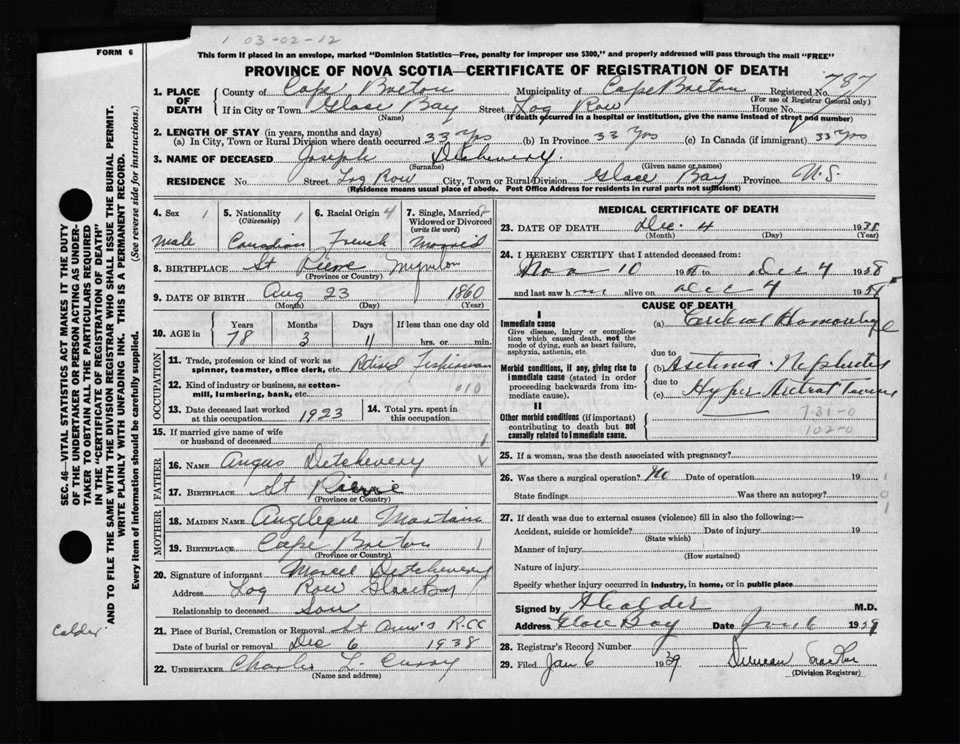 1 03-02-12
FORM 6
This form if placed in an envelope, marked "Dominion Statistics—Free, penalty for improper use $300," and properly addressed will pass through the mail "FREE"
PROVINCE OF NOVA SCOTIA—CERTIFICATE OF REGISTRATION OF DEATH
1. PLACE OF DEATH
County of Cape Breton Municipality of Cape Breton Registered No. 787
(For use of Registrar General only)
If in City or Town Glace Bay Street Log Row House No.
(Name) (If death occurred in a hospital or institution, give the name instead of street and number)
2. LENGTH OF STAY (in years, months and days)
(a) In City, Town or Rural Division where death occurred 33 Yrs (b) In Province 33 Yrs (c) In Canada (if immigrant) 33 Yrs
3. NAME OF DECEASED Joseph Detcheverry.
(Surname) (Given name or names)
RESIDENCE No. Street Log Row City, Town or Rural Division Glace Bay Province N.S.
(Residence means usual place of abode. Post Office Address for residents in rural parts not sufficient)
4. Sex 1 5. Nationality 1 (Citizenship) 6. Racial Origin 4 7. Single, Married, Widowed or Divorced (write the word)
Male Canadian French Married
8. BIRTHPLACE St Pierre
(Province or Country)
9. DATE OF BIRTH Aug 23 1860
(Month) (Day) (Year)
10. AGE in Years Months Days If less than one day old
78 3 11 hrs. or min.
OCCUPATION
11. Trade, profession or kind of work as spinner, teamster, office clerk, etc. Retired Fisherman
12. Kind of industry or business, as cotton-mill, lumbering, bank, etc. 010
13. Date deceased last worked at this occupation 1923 14. Total yrs. spent in this occupation
15. If married give name of wife or husband of deceased 1
FATHER
16. NAME Angus Detcheverry
17. BIRTHPLACE St Pierre
(Province or Country)
MOTHER
18. MAIDEN NAME
19. BIRTHPLACE Cape Breton 1
(Province or Country)
20. Signature of informant Marcel Detcheverry
Address Log Row Glace Bay
Relationship to deceased Son
21. Place of Burial, Cremation or Removal St Ann's R.CC
Date of burial or removal Dec 6 1938
22. UNDERTAKER Charles L. Curry
(Name and address)
MEDICAL CERTIFICATE OF DEATH
23. DATE OF DEATH Dec. 4 1938
(Month) (Day) (Year)
24. I HEREBY CERTIFY that I attended deceased from:
Nov 10 1938 to Dec 4 1938
and last saw h im alive on Dec 4 1938
CAUSE OF DEATH
I
Immediate cause
Give disease, injury or complication which caused death, not the mode of dying, such as heart failure, asphyxia, asthenia, etc.
(a) Cerebral Hemorrhage
due to
Morbid conditions, if any, giving rise to immediate cause (stated in order proceeding backwards from immediate cause).
(b) Nephritis
due to
(c)
II
Other morbid conditions (if important) contributing to death but not causally related to immediate cause.
731-0
102-0
25. If a woman, was the death associated with pregnancy?
26. Was there a surgical operation? No Date of operation 19
State findings Was there an autopsy?
27. If death was due to external causes (violence) fill in also the following:—
Accident, suicide or homicide? Date of injury 19
(State which)
Manner of injury
(How sustained)
Nature of injury
Specify whether injury occurred in industry, in home, or in public place
Signed by A Calder M.D.
Address Glace Bay Date Jan 6 1939
28. Registrar's Record Number
29. Filed Jan 6 1939 Duncan
(Division Registrar)
SEC. 46—VITAL STATISTICS ACT MAKES IT THE DUTY
OF THE UNDERTAKER OR PERSON ACTING AS UNDER-
TAKER TO OBTAIN ALL THE PARTICULARS REQUIRED
IN THE "CERTIFICATE OF REGISTRATION OF DEATH"
AND TO FILE THE SAME WITH THE DIVISION REGISTRAR WHO SHALL ISSUE THE BURIAL PERMIT.
WRITE PLAINLY WITH UNFADING INK. THIS IS A PERMANENT RECORD.
Every item of information should be carefully supplied. (See reverse side for instructions.)
Calder